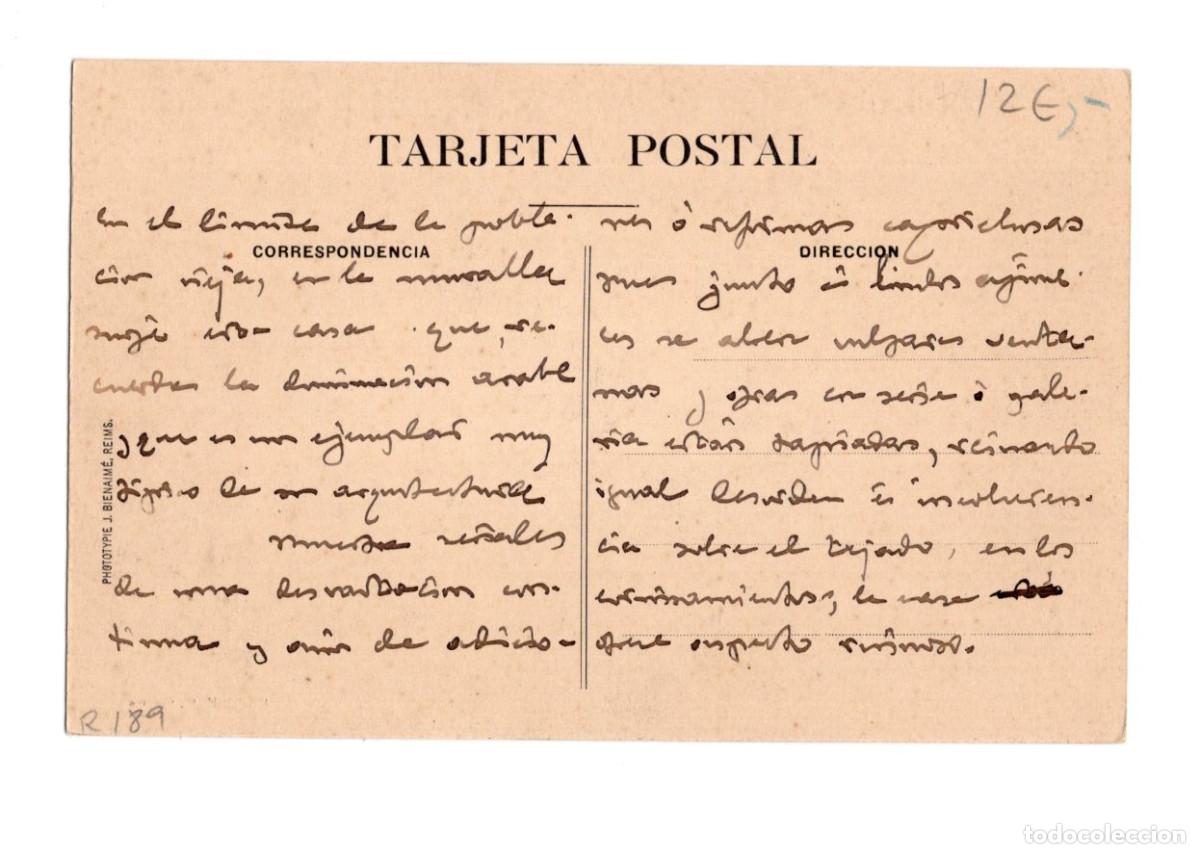 12€,-
TARJETA POSTAL
En el limite de la pobla-
CORRESPONDENCIA
cion vieja, en la muralla
surje esta casa que, re-
cuerda la dominacion arabe
y que es un ejemplar muy
tipico de su arquitectura
muestra señales
de una devastacion con-
tinua y aun de adicio-
nes ó reformas caprichosas
DIRECCION
pues junto á lindos ajime-
ces se abren vulgares venta-
nas y otras en serie ó gale-
ria están tapiadas, reinando
igual desorden é incoheren-
cia sobre el tejado, en los
cornisamientos, la casa
ofrece aspecto ruinoso.
PHOTOTYPIE J. BIENAIMÉ, REIMS.
R189
todocoleccion